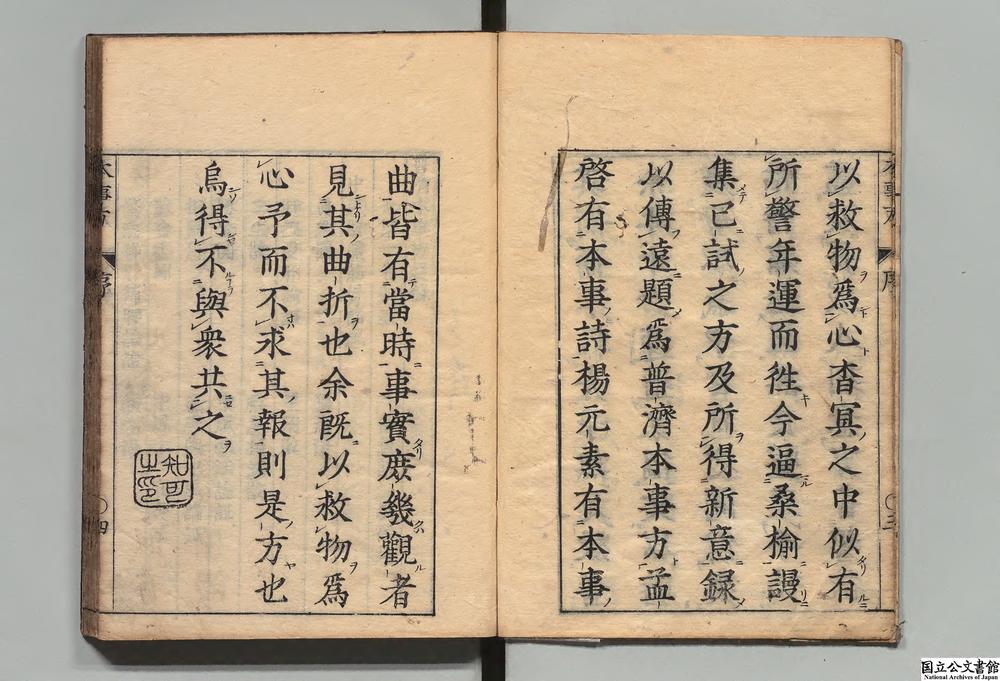 以救物爲心杳冥之中似有
所警年運而徃今逼桑榆謾
集已試之方及所得新意録
以傳遠題爲普濟本事方孟
啓有本事詩楊元素有本事
曲皆有當時事實庶幾觀者
見其曲折也余既以救物爲
心予而不求其報則是方也
烏得不與衆共之
知可之印
本事方 序 三
本事方 序 四
国立公文書館
National Archives of Japan